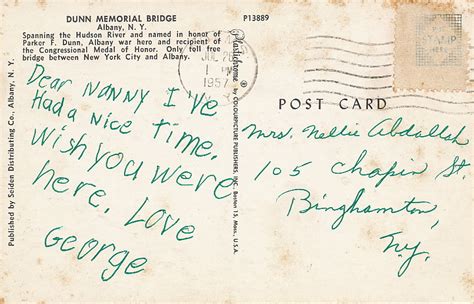 DUNN MEMORIAL BRIDGE
Albany, N. Y.
P13889
Spanning the Hudson River and named in honor of
Parker F. Dunn, Albany war hero and recipient of
the Congressional Medal of Honor. Only toll free
bridge between New York City and Albany.
Dear Nanny I've
Had a nice time.
Wish you were
here. Love
George
Published by Seiden Distributing Co., Albany, N. Y.
Plastichrome by COLOURPICTURE PUBLISHERS, INC., Boston 15, Mass., U.S.A.
1957
POST CARD
Mrs. Nellie Abdallah
105 Chapin St.
Binghamton,
N.Y.